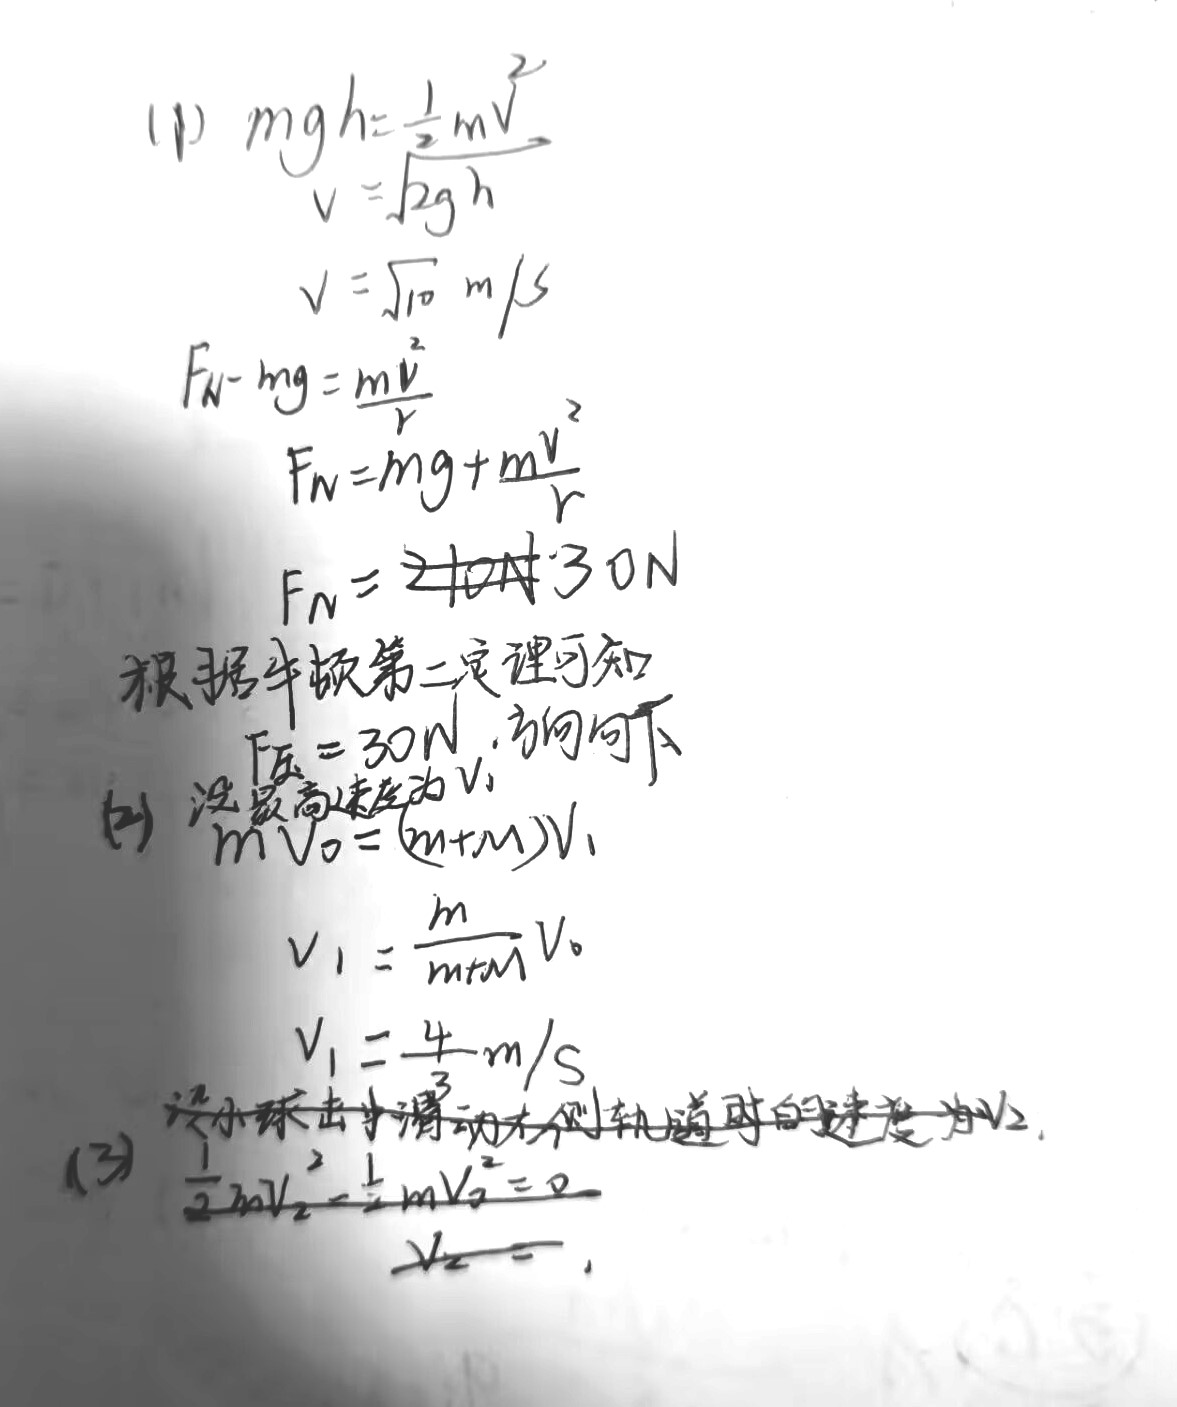 (1) mgh=½mv²
v=√2gh
v=√10 m/s
F_N-mg=mv²/r
F_N=mg+mv²/r
F_N=210N 30N
根据牛顿第二定理可知
F压=30N,方向向下
(2) 设最高速度为V₁
mV₀=(m+M)V₁
V₁=m/(m+M) V₀
V₁=4/3 m/s
设小球击中滑动右侧轨道时的速度为V₂.
(3) ½mV₂²-½mV₀²=0
V₂=.